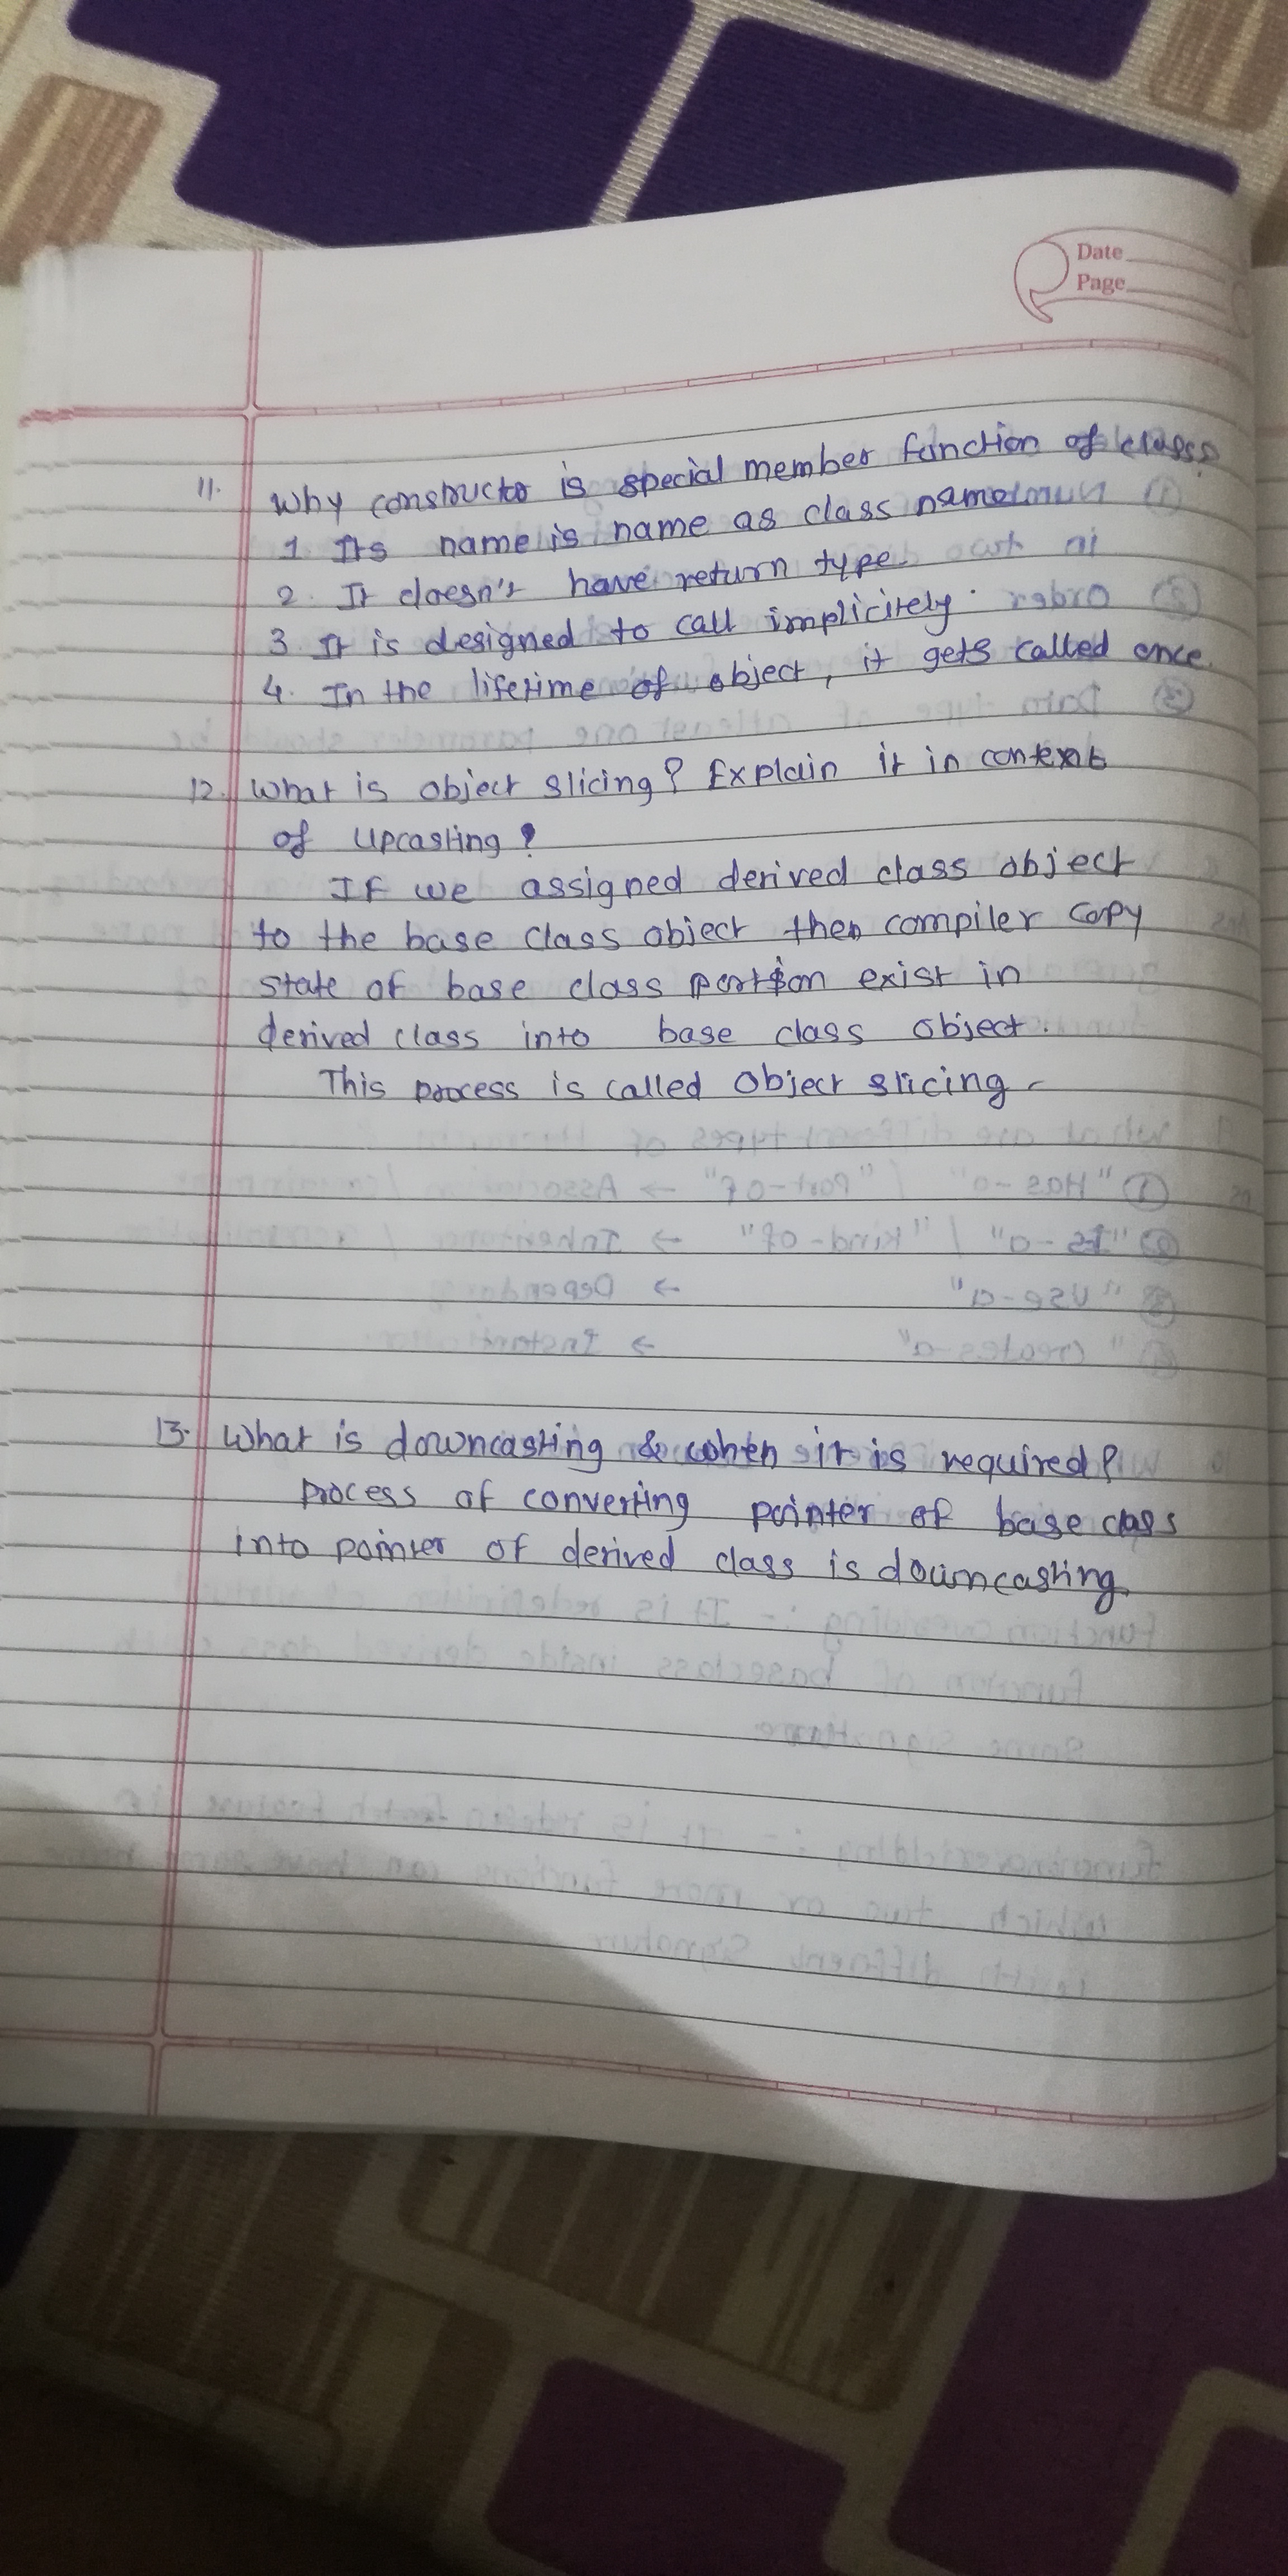 Date
Page
11. Why constructo is special member function of class?
1 Its name is name as class name
2. It doesn't have return type.
3 It is designed to call implicitely.
4. In the lifetime of object, it gets called once.
12. What is object slicing? Explain it in context
of Upcasting?
If we assigned derived class object
to the base class object then compiler copy
state of base class portion exist in
derived class into base class object.
This process is called Object slicing.
13. What is downcasting & when it is required?
Process of converting pointer of base class
into pointer of derived class is downcasting.